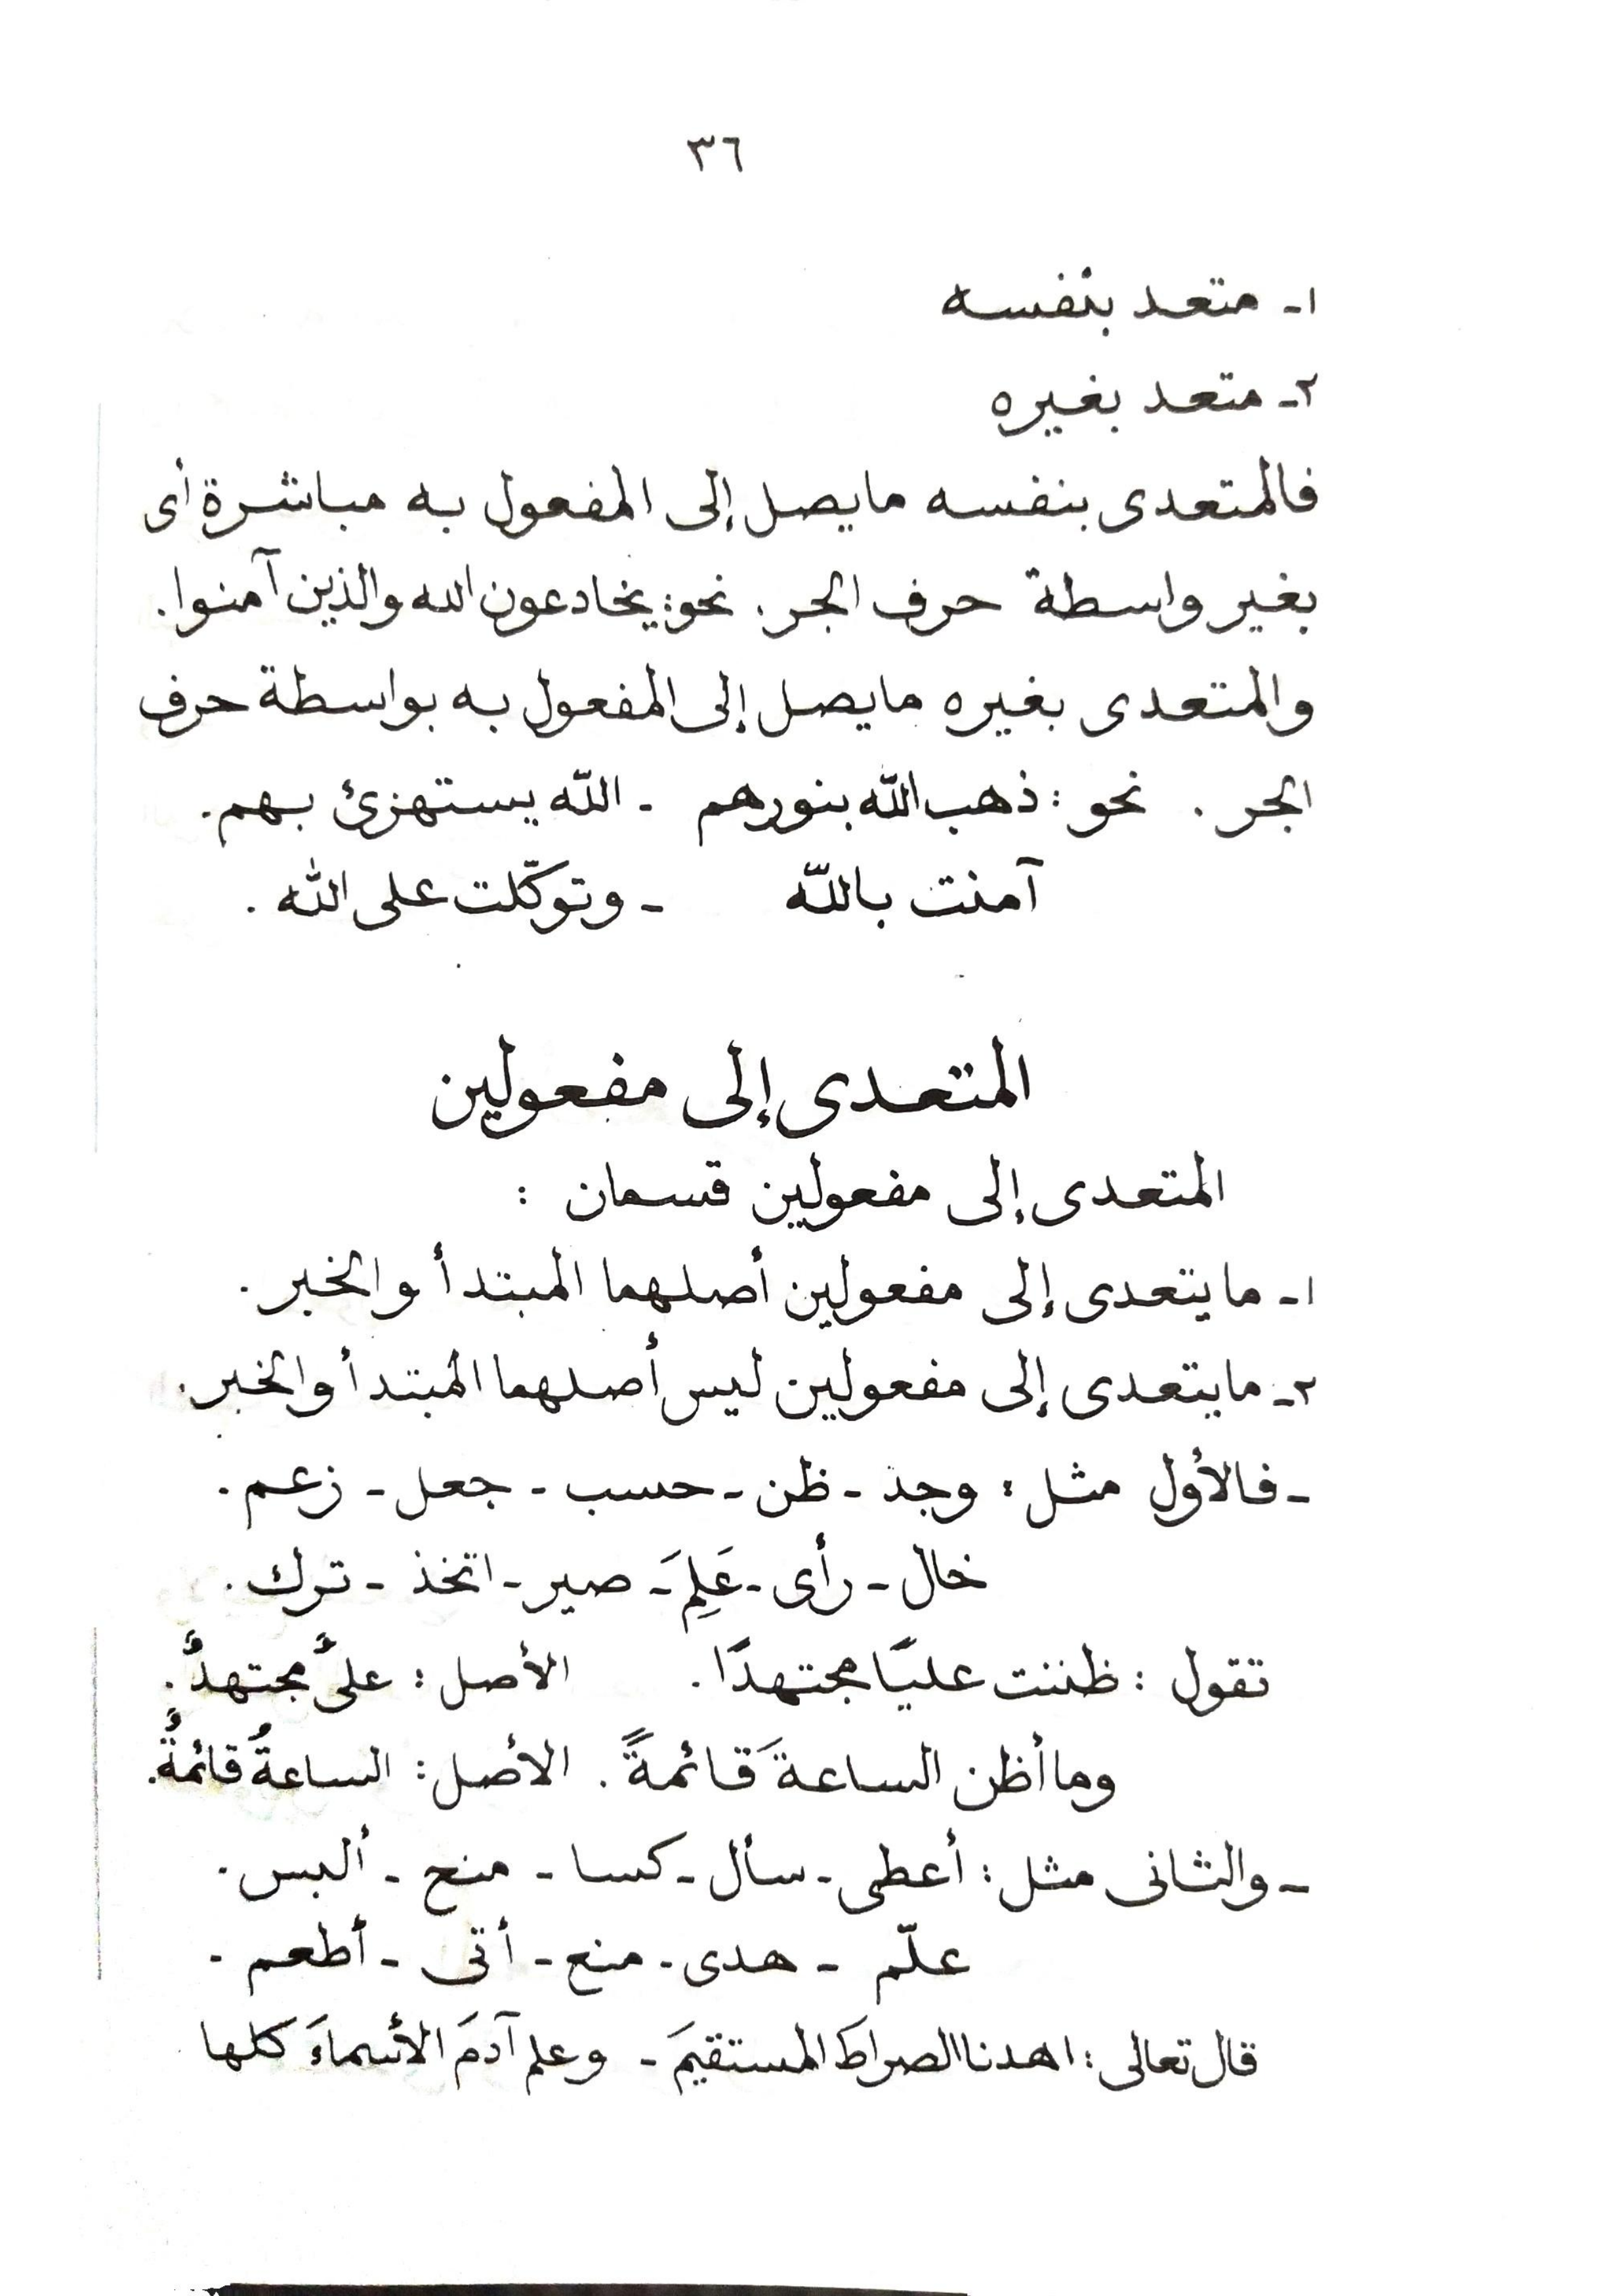 ٣٦
١ـ متعد بنفسه
٢ـ متعد بغيره
فالمتعدى بنفسه مايصل إلى المفعول به مباشرة أى
بغير واسطة حرف الجر. نحو: يخادعون الله والذين آمنوا.
والمتعدى بغيره مايصل إلى المفعول به بواسطة حرف
الجر. نحو: ذهب الله بنورهم ـ اللّه يستهزئ بهم.
آمنت باللّه ـ وتوكّلت على اللّه.
المتعدى إلى مفعولين
المتعدى إلى مفعولين قسمان :
١ـ ما يتعدى إلى مفعولين أصلهما المبتدأ والخبر.
٢ـ ما يتعدى إلى مفعولين ليس أصلهما المبتدأ والخبر.
ـ فالأول مثل: وجد ـ ظن ـ حسب ـ جعل ـ زعم.
خال ـ رأى ـ عَلِمَ ـ صير ـ اتخذ ـ ترك.
تقول: ظننت عليًّا مجتهدًا. الأصل: علىٌّ مجتهدٌ.
وما أظن الساعةَ قائمةً. الأصل: الساعةُ قائمةٌ.
ـ والثانى مثل: أعطى ـ سأل ـ كسا ـ منح ـ ألبس.
علّم ـ هدى ـ منع ـ أتى ـ أطعم.
قال تعالى: اهدنا الصراطَ المستقيمَ ـ وعلم آدمَ الأسماءَ كلها